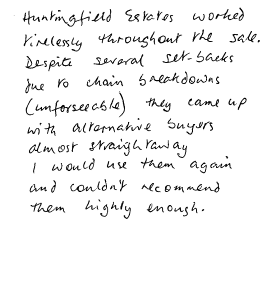 Huntingfield Estates worked
tirelessly throughout the sale.
Despite several set-backs
due to chain breakdowns
(unforseeable) they came up
with alternative buyers
almost straightaway
I would use them again
and couldn't recommend
them highly enough.